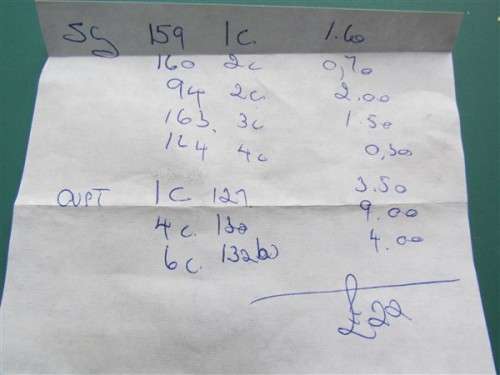 SG 159 1c. 1.60
160 2c 0,70
94 2c. 2.00
163. 3c 1.50
124 4c 0,30
1c 127 3.50
4c. 130 9.00
6c. 132 4.00
£22